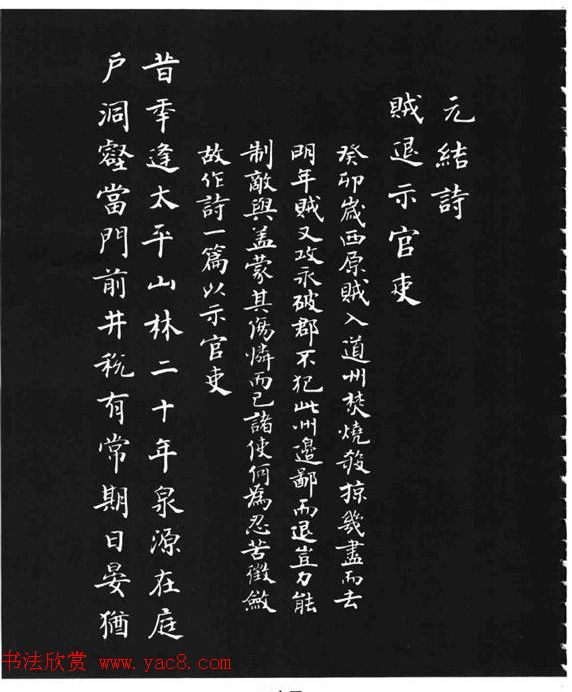 元結詩
賊退示官吏
癸卯歲西原賊入道州焚燒殺掠幾盡而去
明年賊又攻永破郡不犯此州邊鄙而退豈力能
制敵與盖蒙其傷憐而已諸使何為忍苦徵斂
故作詩一篇以示官吏
昔年逢太平山林二十年泉源在庭
戶洞壑當門前井稅有常期日晏猶
书法欣赏 www.yac8.com